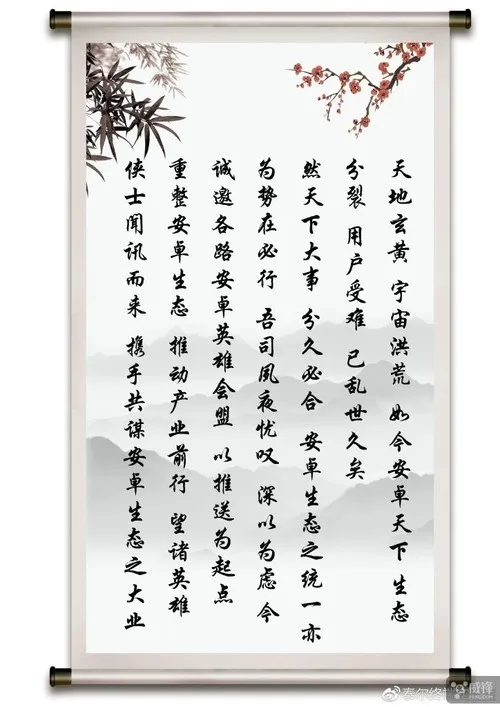 天地玄黄 宇宙洪荒 如今安卓天下 生态
分裂 用户受难 已乱世久矣
然天下大事 分久必合 安卓生态之统一亦
为势在必行 吾司夙夜忧叹 深以为虑 今
诚邀各路安卓英雄会盟 以推送为起点
重整安卓生态 推动产业前行 望诸英雄
侠士闻讯而来 携手共谋安卓生态之大业
威锋